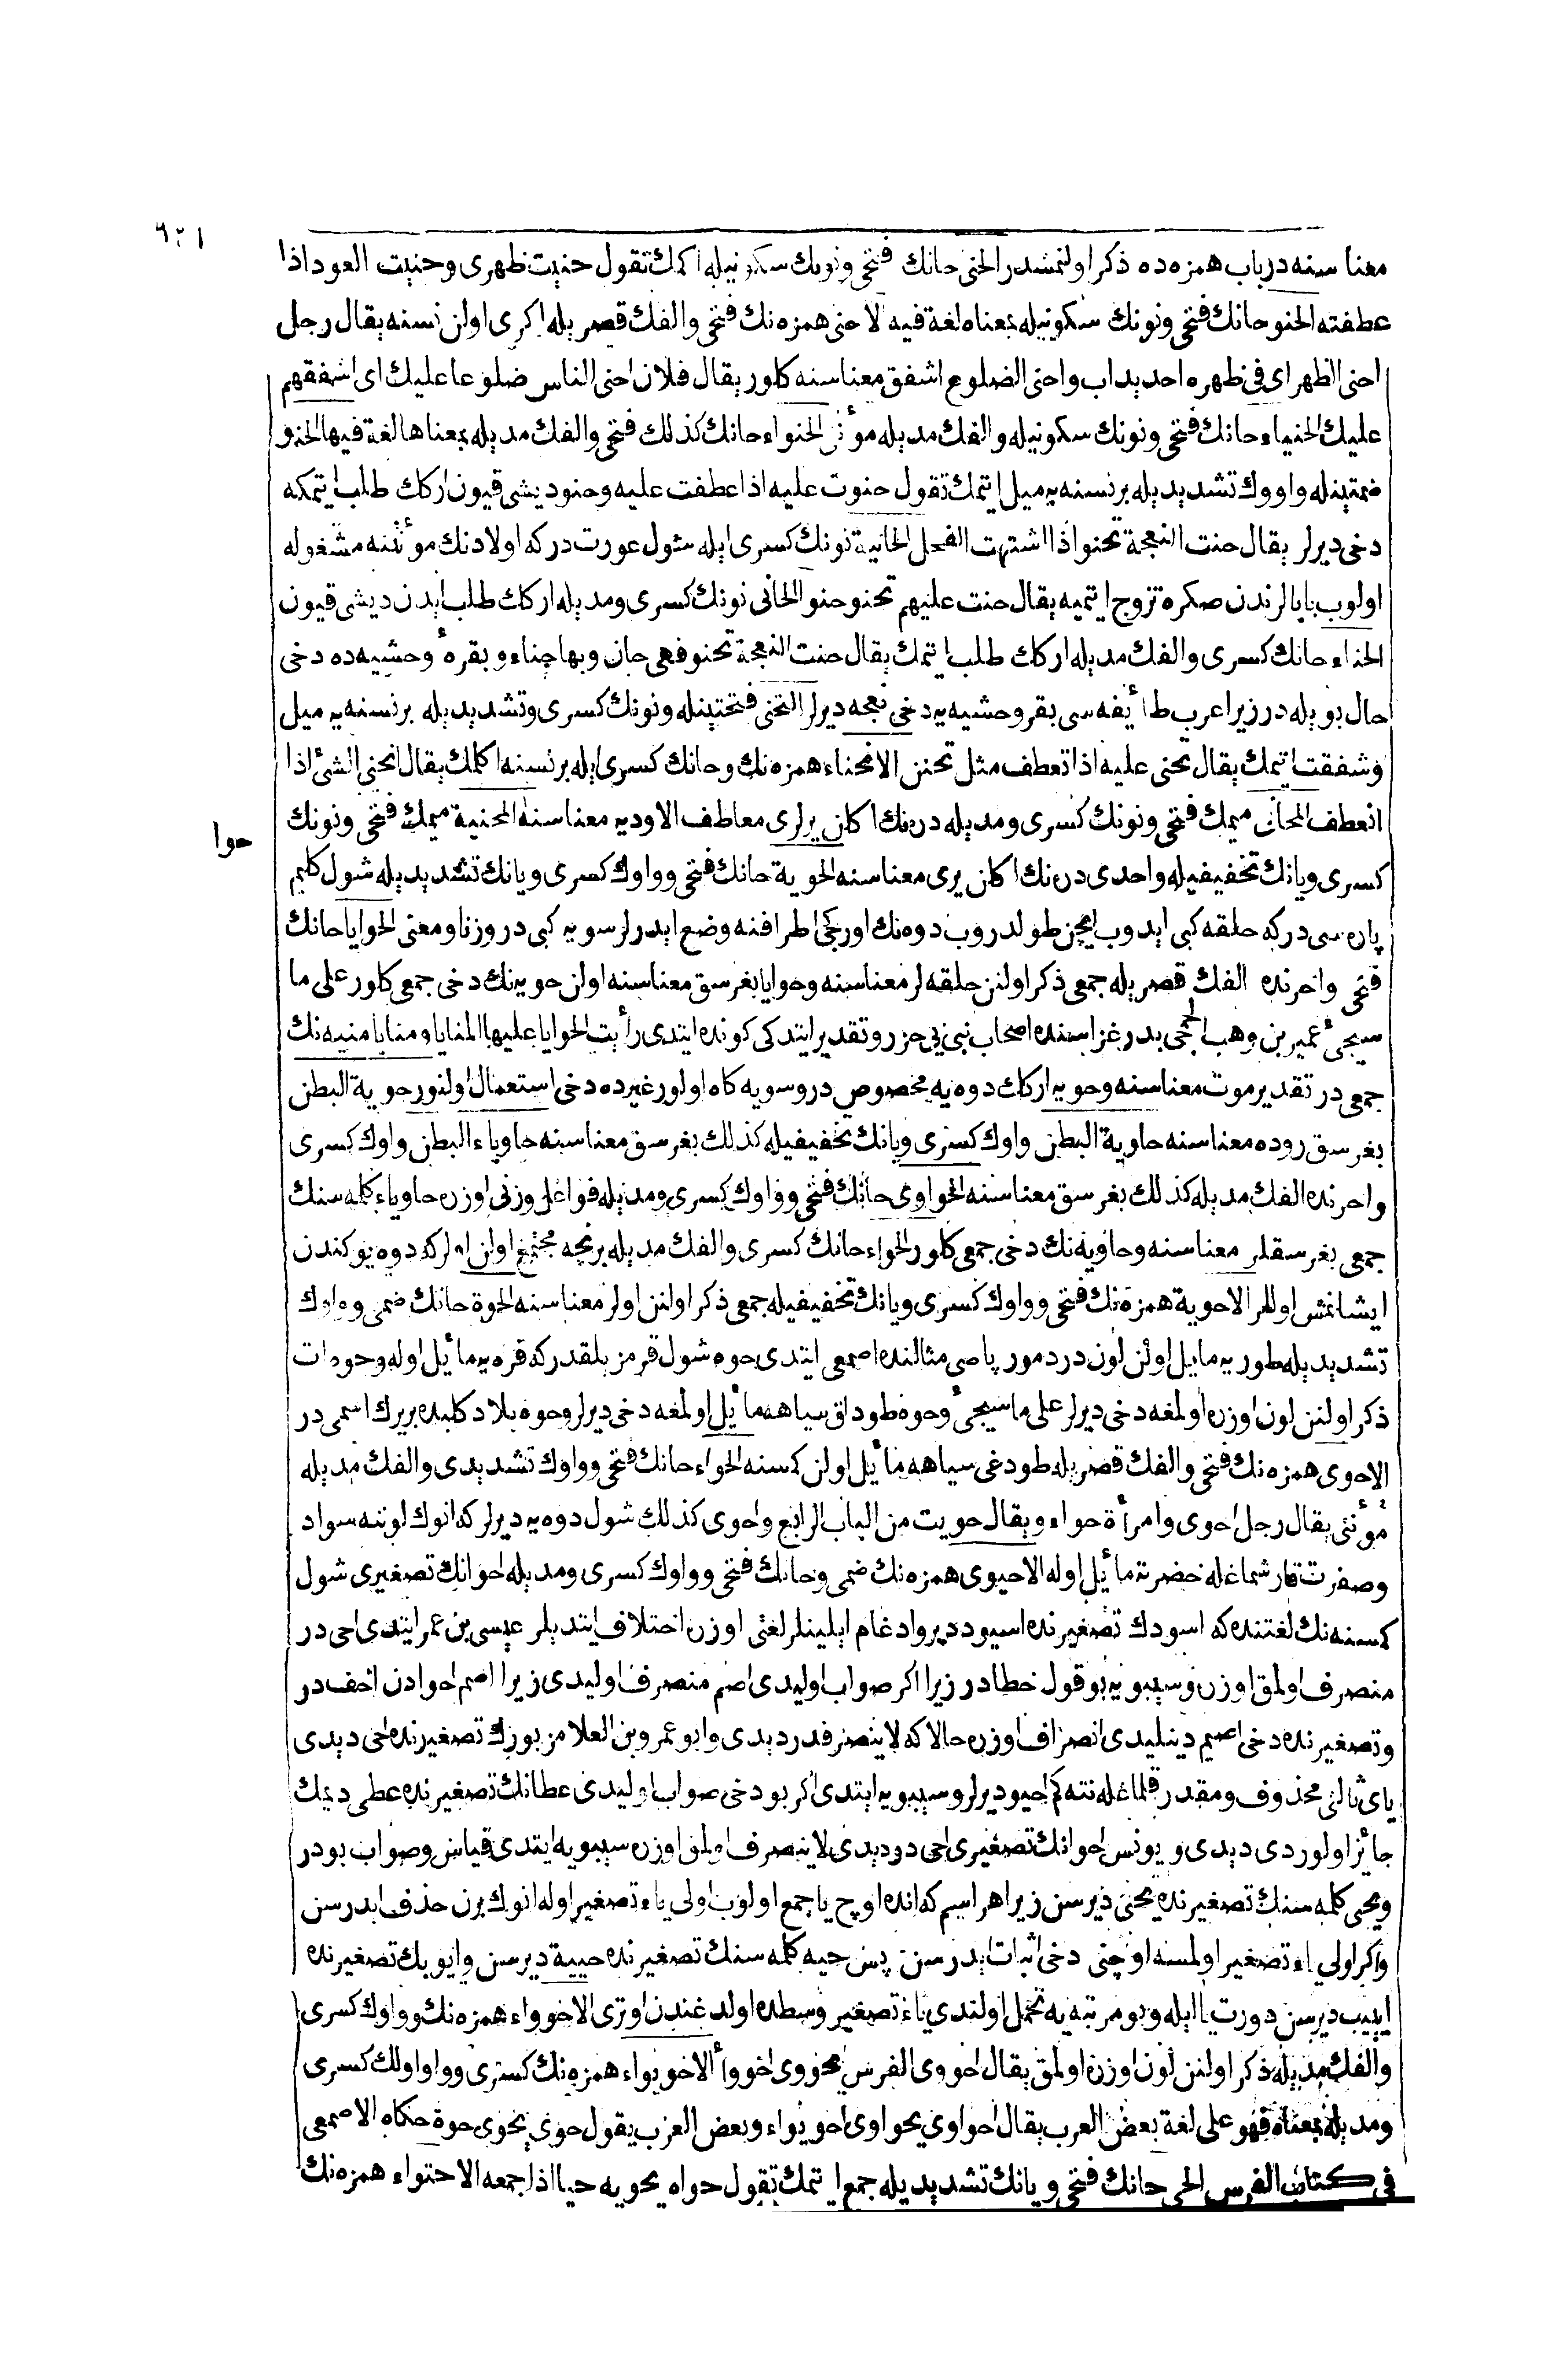 ٦٢١
معناسنه در باب همزه ده ذكر اولنمشدر الحنى حانك فتحى ونونك سكونيله اكمك تقول حنيت ظهرى وحنيت العود اذا
عطفته الحنو حانك فتحى ونونك سكونيله بمعناه لغة فيه الاحنى همزه نك فتحى والفك قصريله اكرى اولن نسنه يقال رجل
احنى الظهر اى فى ظهره احديداب واحنى الضلوع اشفق معناسنه كلور يقال فلان احنى الناس ضلوعا عليك اى اشفقهم
عليك الحنياء حانك فتحى ونونك سكونيله والفك مديله مؤنثى الحنواء حانك كذلك فتحى والفك مديله بمعناها لغة فيها الحنو
ضمتينله واووك تشديديله برنسنه يه ميل ايتمك تقول حنوت عليه اذا عطفت عليه وحنو ديشى قيون اركك طلب ايتمكه
دخى ديرلر يقال حنت النعجة تحنو اذا اشتهت الفحل الحانية نونك كسرى ايله شول عورت دركه اولادنك مؤنتنه مشغوله
اولوب بابالرندن صكره تزوج ايتميه يقال حنت عليهم تحنو حنوا الحانى نونك كسرى ومديله اركك طلب ايدن ديشى قيون
الحناء حانك كسرى والفك مديله اركك طلب ايتمك يقال حنت النعجة تحنو فهى حان وبها حناء وبقرهٔ وحشيه ده دخى
حال بويله در زيرا عرب طائفه سى بقر وحشيه يه دخى نعجه ديرلر التحنى فتحتينله ونونك كسرى وتشديديله برنسنه يه ميل
وشفقت ايتمك يقال تحنى عليه اذا تعطف مثل تحنن الانحناء همزه نك وحانك كسرى ايله برنسنه اكلمك يقال انحنى الشئ اذا
انعطف المحانى ميمك فتحى ونونك كسرى ومديله دره نك اكلن يرلرى معاطف الاوديه معناسنه المحنية ميمك فتحى ونونك
حوا
كسرى ويانك تخفيفيله واحدى دره نك اكلن يرى معناسنه الحوية حانك فتحى وواوك كسرى ويانك تشديديله شول كليم
پاره سى دركه حلقه كبى ايدوب ايچن طولدروب دوه نك اوركجى اطرافنه وضع ايدرلر سويه كبى در وزنا ومعنى الحوايا حانك
فتحى واخرنده الفك قصريله جمعى ذكر اولنن حلقه لر معناسنه وحوايا بغرسق معناسنه اولن حويه نك دخى جمعى كلور على ما
سيجئ عمير بن وهب الجمحى بدر غزاسنده اصحاب نبى يى حزر وتقدير ايتدكى كونده ايتدى رأيت الحوايا عليها المنايا ومنايا منيه نك
جمعى در تقدير موت معناسنه وحويه اركك دوه يه مخصوص در وسويه كاه اولور غيرده دخى استعمال اولنور حوية البطن
بغرسق روده معناسنه حاوية البطن واوك كسرى ويانك تخفيفيله كذلك بغرسق معناسنه حاوياء البطن واوك كسرى
واخرنده الفك مديله كذلك بغرسق معناسنه الحواوى حانك فتحى وواوك كسرى ومديله فواعل وزنى اوزره حاوياء كلمه سنك
جمعى بغرسقلر معناسنه وحاويه نك دخى جمعى كلور الحواء حانك كسرى والفك مديله برنجه مجتمع اولن اولركه دوه يوكندن
ايشانمش اولللر الاحوية همزه نك فتحى وواوك كسرى ويانك تخفيفيله جمعى ذكر اولنن اولر معناسنه الحوة حانك ضمى وواوك
تشديديله طوريه مايل اولن لون در دمور پاسى مثالنده اصمعى ايتدى حوه شول قرمزيلقدركه قره يه مائل اوله وحوه ات
ذكر اولنن لون اوزره اولمغه دخى ديرلر على ما سيجئ وحوه طوداق سياهه مائل اولمغه دخى ديرلر وحوه بلاد كلبده بريرك اسمى در
الاحوى همزه نك فتحى والفك قصريله طودغى سياهه مائل اولن كمسنه الحواء حانك فتحى وواوك تشديدى والفك مديله
مؤنثى يقال رجل احوى وامرأة حواء ويقال حويت من الباب الرابع واحوى كذلك شول دوه يه ديرلركه انوك لوننه سواد
وصفرت قارشمغله خضرته مائل اوله الاحيوى همزه نك ضمى وحانك فتحى وواوك كسرى ومديله احوانك تصغيرى شول
كمسنه نك لغتنده كه اسودك تصغيرنده اسيود دير وادغام ايلينلر لغتى اوزره اختلاف ايتديلر عيسى بن عمر ايتدى احى در
منصرف اولمق اوزره وسيبويه بو قول خطادر زيرا اكر صواب اوليدى اصم منصرف اوليدى زيرا اصم احوادن اخف در
وتصغيرنده دخى اصيم دينليدى انصراف اوزره حالا كه لاينصرفدر ديدى وابو عمرو بن العلا مزبورك تصغيرنده احى ديدى
ياى ثالثى محذوف ومقدر قلمغله نته كم احيو ديرلر وسيبويه ايتدى اكر بو دخى صواب اوليدى عطانك تصغيرنده عطى ديمك
جائز اولوردى ديدى ويونس احوانك تصغيرى احى در ديدى لاينصرف اولمق اوزره سيبويه ايتدى قياس وصواب بودر
ويحيى كلمه سنك تصغيرنده يحيى ديرسن زيرا هر اسم كه انده اوچ يا جمع اولوب اولى ياء تصغير اوله انوك برن حذف ايدرسن
واكر اولى ياء تصغير اولمسه اوچنى دخى اثبات ايدرسن پس حيه كلمه سنك تصغيرنده حيية ديرسن وايوبك تصغيرنده
اييب ديرسن دورت يا ايله وبو مرتبه يه تحمل اولندى ياء تصغير وسطده اولدغندن اوترى الاحوواء همزه نك وواوك كسرى
والفك مديله ذكر اولنن لون اوزره اولمق يقال احووى الفرس يحووى احوواأ الاحويواء همزه نك كسرى وواو اولك كسرى
ومديله بمعناه فهو على لغة بعض العرب يقال احواوى يحواوى احويواء وبعض العرب يقول حوى يحوى حوة حكاه الاصمعى
فى كتاب الفرس الحى حانك فتحى ويانك تشديديله جمع ايتمك تقول حواه يحويه حيا اذا جمعه الاحتواء همزه نك